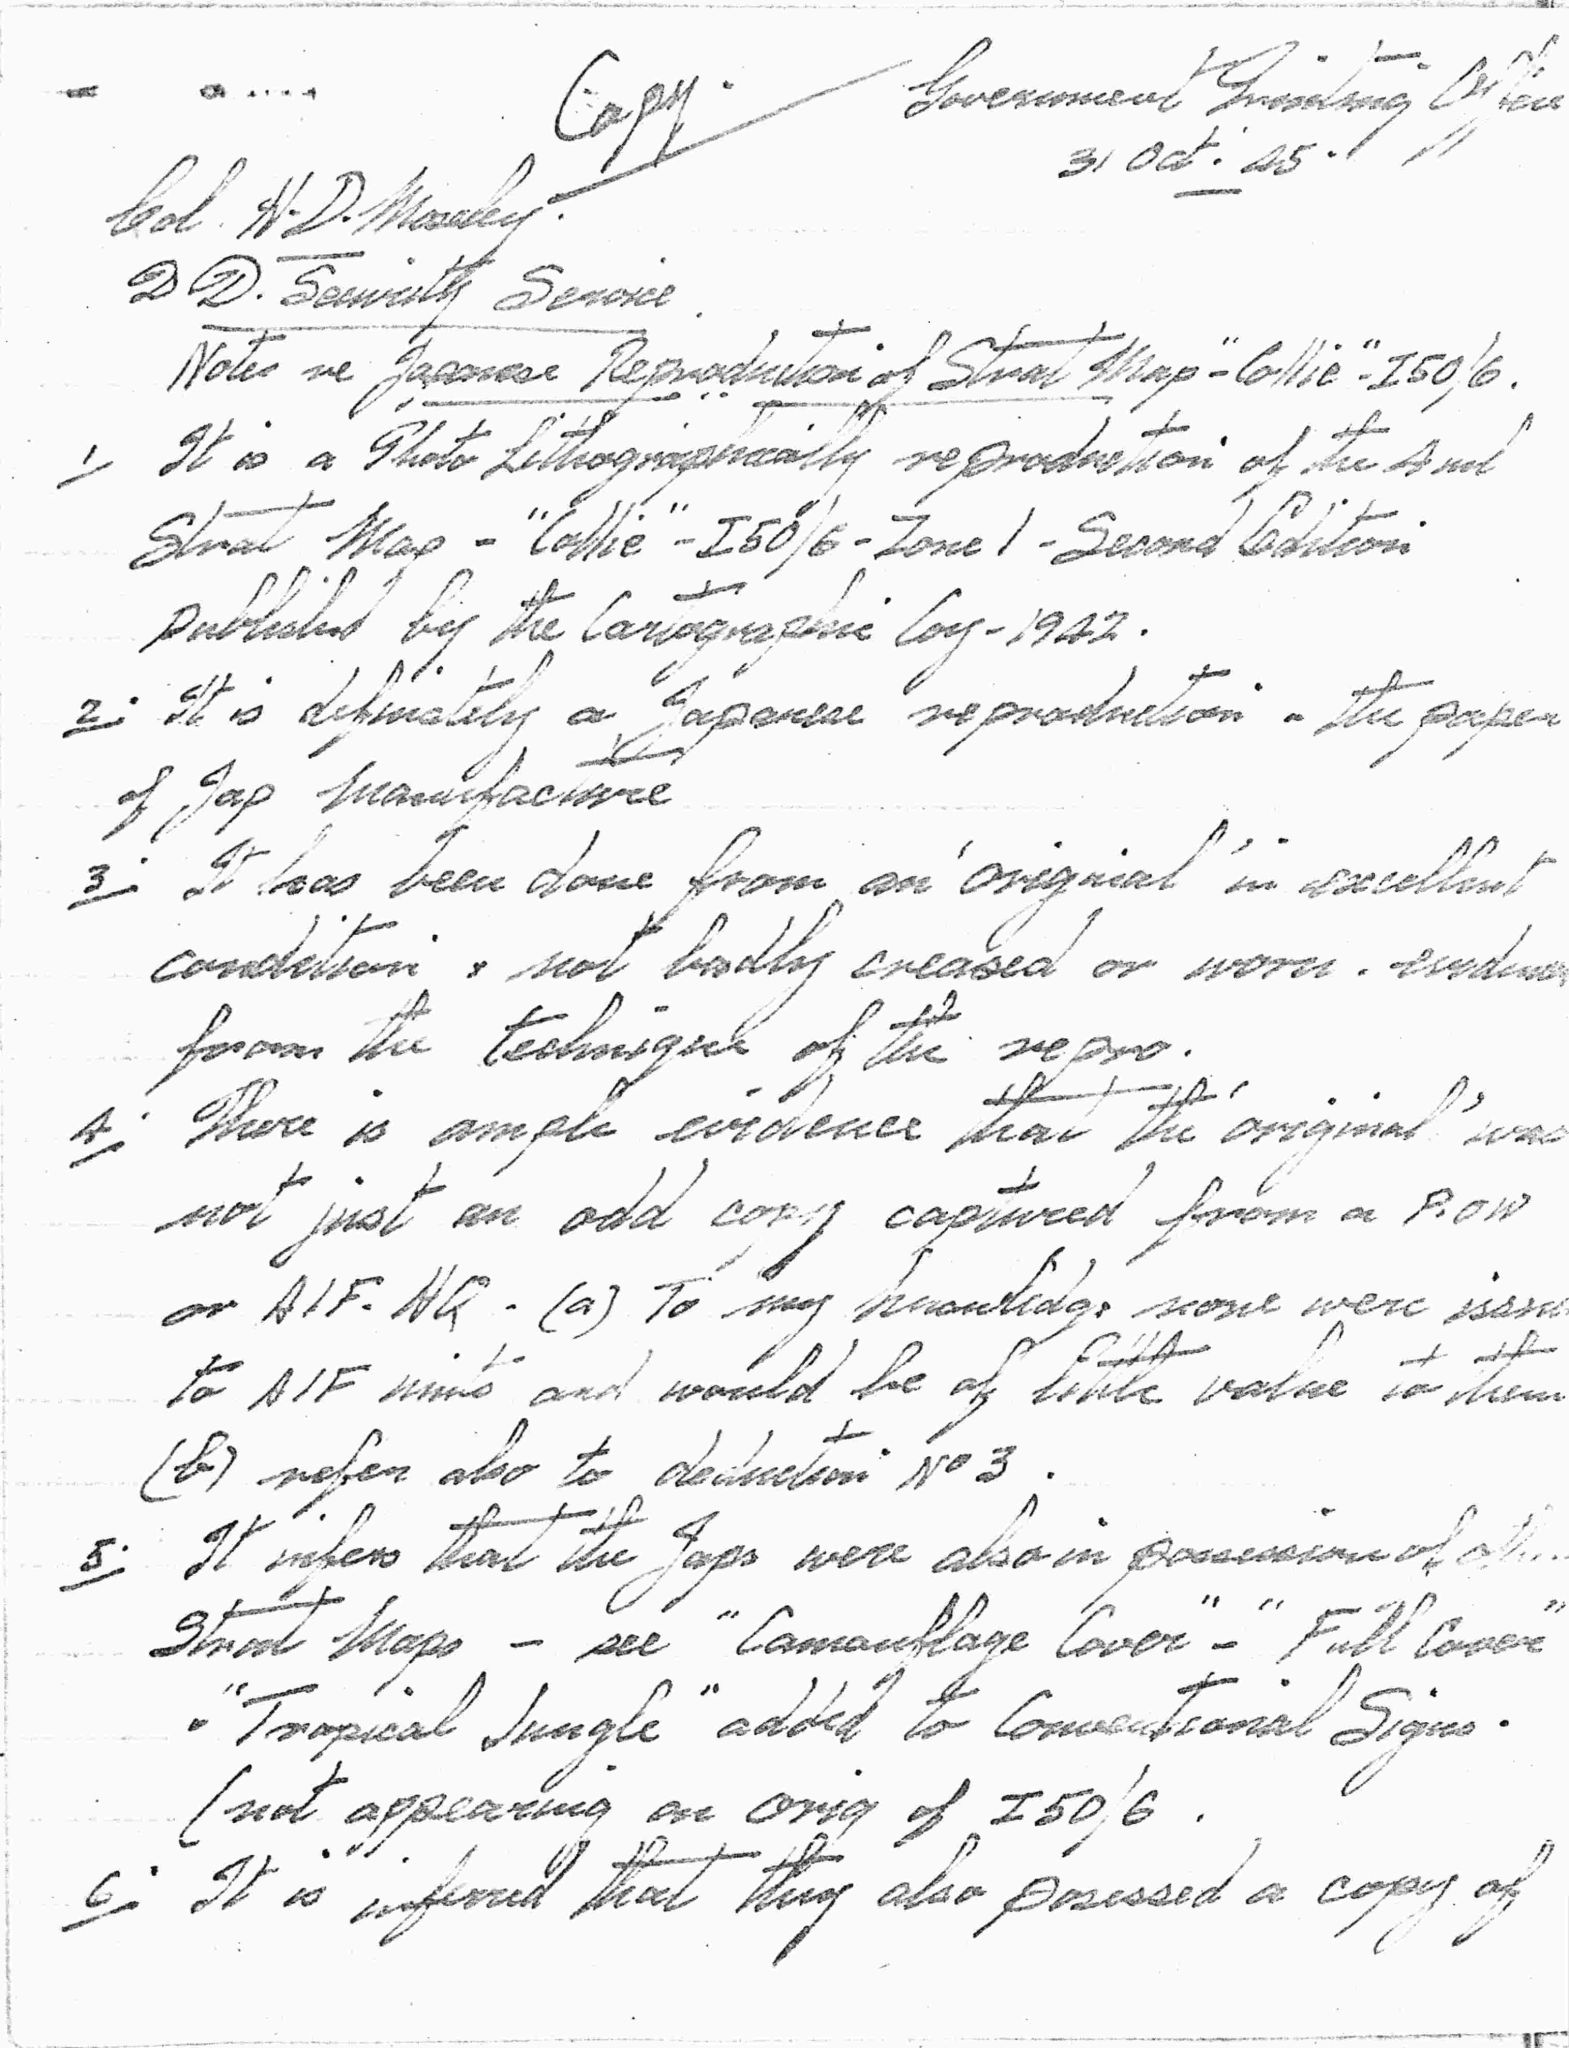 Copy
Government Printing Office
31 Oct. 45.
Col. H. D. Moseley.
D D. Security Service.
Notes re Japanese Reproduction of Strat Map - "Collie" - I50/6.
1 It is a Photo Lithographically reproduction of the 4 ml
Strat Map - "Collie" - I50/6 - Zone 1 - Second Edition
published by the Cartographic Coy - 1942.
2. It is definitely a Japanese reproduction - the paper
of Jap manufacture
3. It has been done from an 'original' in excellent
condition & not badly creased or worn.
from the technique of the repro.
4. There is ample evidence that the 'original' was
not just an odd copy captured from a P.OW
or AIF. HQ. (a) To my knowledge none were
to AIF units and would be of little value to them
(b) refer also to deduction No 3.
5. It infers that the Japs were also in possession of
Strat Maps - see "Camouflage Cover" - "Full Cover"
"Tropical Jungle" added to Conventional Signs.
(not appearing on orig of I50/6.
6. It is inferred that they also posessed a copy of